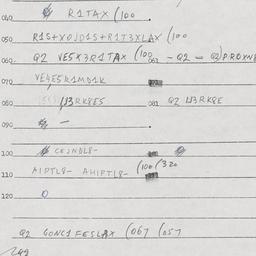 040 R1TAX (100
050 R1S+X0JD1S+R1T3XLAX (100
060 Q2 VE5X3R1TAX (100 061 - Q2 = Q2)PROXNE
070 VE4E5R1MD1K
080 1J3RK8E5 081 Q2 1J3RK8E
090 -
100 CEJNDL8-
110 A1PTL8- AH1PTL8- (100 (320
120 0
Q2 GONC1FESLAX (067 (057
249